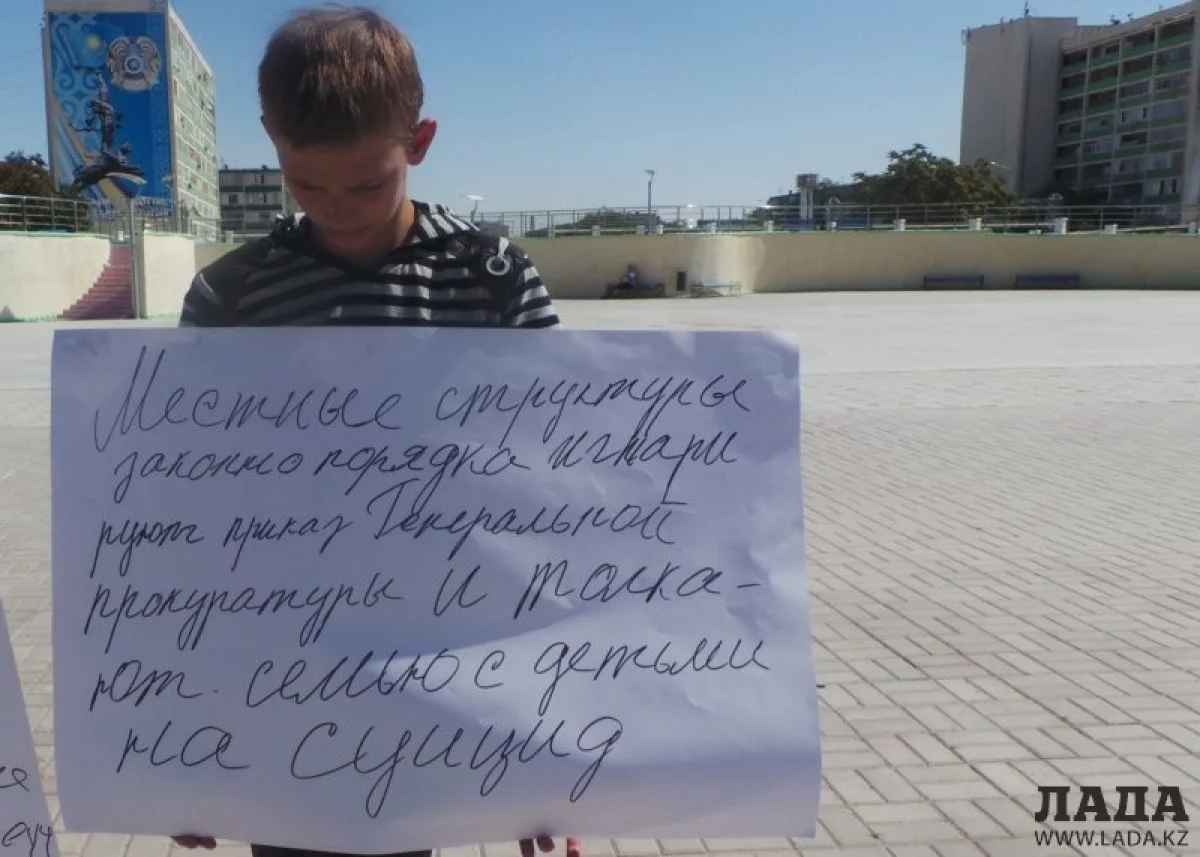 Местные структуры
законно порядка игнари
руют приказ Генеральной
прокуратуры и толка-
ют. семью с детьми
на суицид
ЛАДА
WWW.LADA.KZ